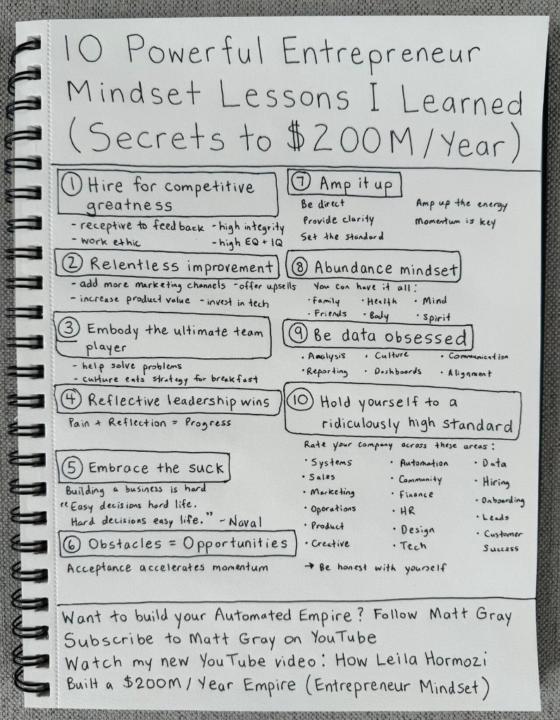 10 Powerful Entrepreneur
Mindset Lessons I Learned
(Secrets to $200M/Year)
1 Hire for competitive
greatness
- receptive to feedback - high integrity
- work ethic - high EQ + IQ
2 Relentless improvement
- add more marketing channels - offer upsells
- increase product value - invest in tech
3 Embody the ultimate team
player
- help solve problems
- culture eats strategy for breakfast
4 Reflective leadership wins
Pain + Reflection = Progress
5 Embrace the suck
Building a business is hard
"Easy decisions hard life.
Hard decisions easy life." - Naval
6 Obstacles = Opportunities
Acceptance accelerates momentum
7 Amp it up
Be direct Amp up the energy
Provide clarity Momentum is key
Set the standard
8 Abundance mindset
You can have it all:
· Family · Health · Mind
· Friends · Body · Spirit
9 Be data obsessed
· Analysis · Culture · Communication
· Reporting · Dashboards · Alignment
10 Hold yourself to a
ridiculously high standard
Rate your company across these areas:
· Systems · Automation · Data
· Sales · Community · Hiring
· Marketing · Finance · Onboarding
· Operations · HR · Leads
· Product · Design · Customer
· Creative · Tech Success
→ Be honest with yourself
Want to build your Automated Empire? Follow Matt Gray
Subscribe to Matt Gray on YouTube
Watch my new YouTube video: How Leila Hormozi
Built a $200M/Year Empire (Entrepreneur Mindset)